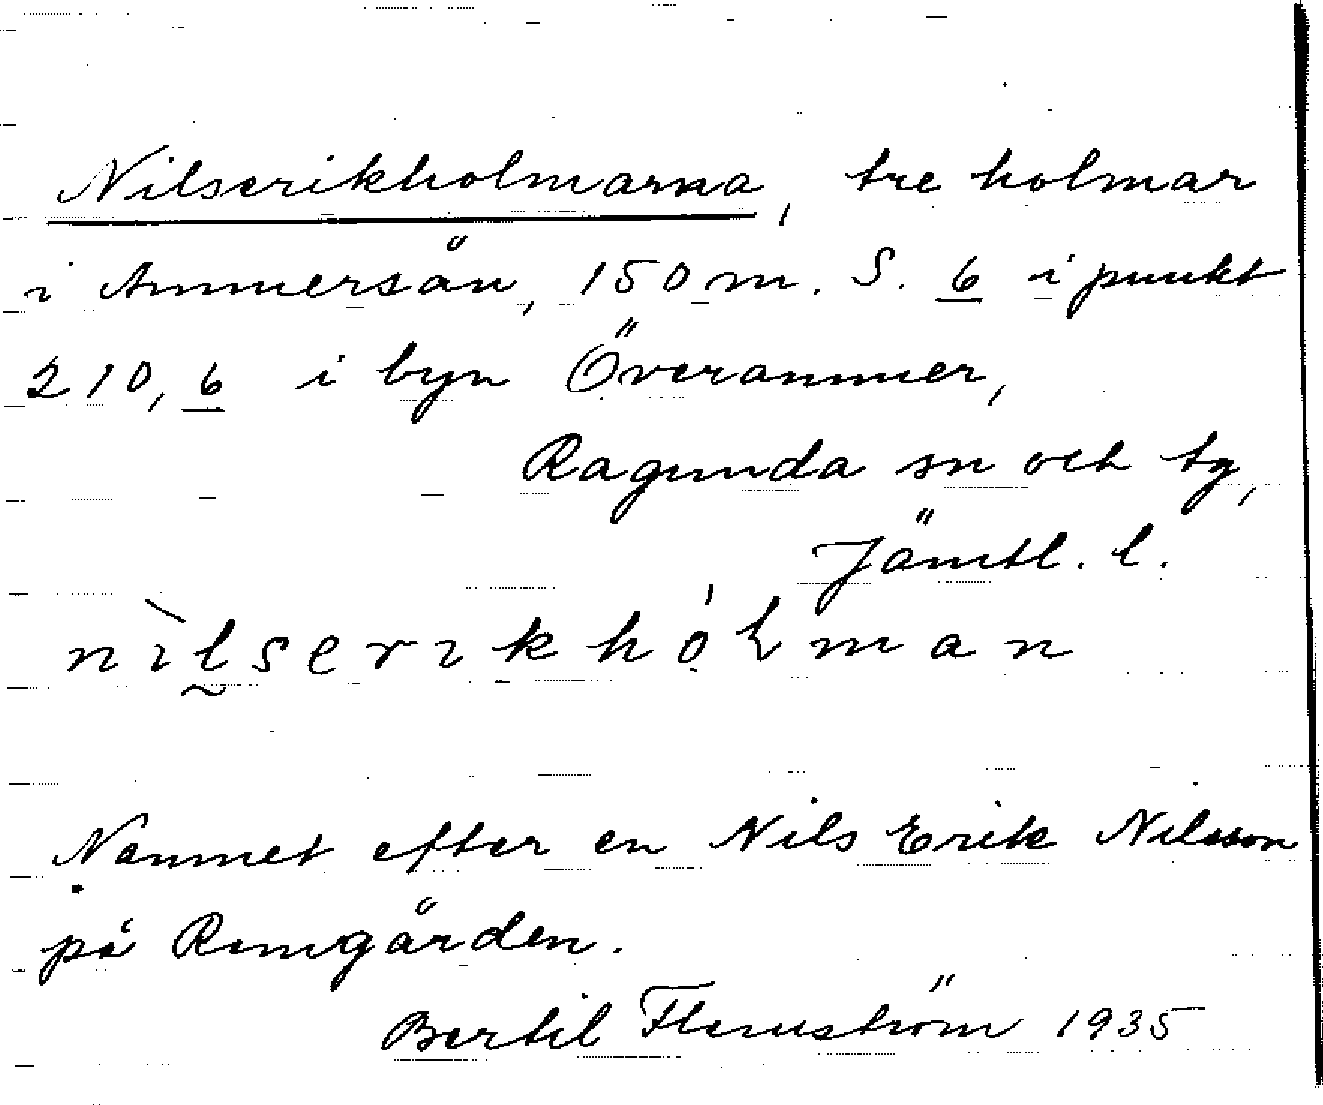 Nilserikholmarna, tre holmar
i Ammersån, 150 m. S. 6 i punkt
210,6 i byn Överammer,
Ragunda sn och tg,
Jämtl. l.
nìlserikhólman
Namnet efter en Nils Erik Nilsson
på Romgården.
Bertil Flemström 1935